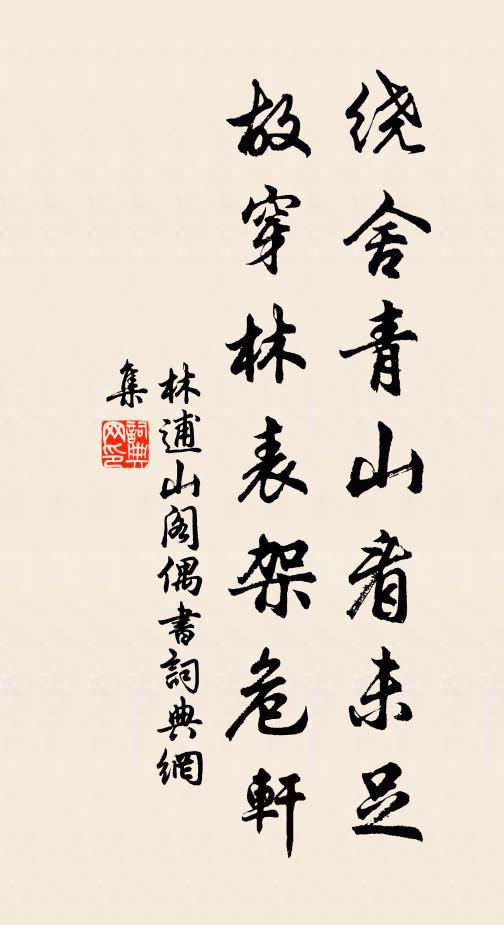 绕舍青山看未足
故穿林表架危轩
林逋山阁偶書詞典網
集
詞典
网印